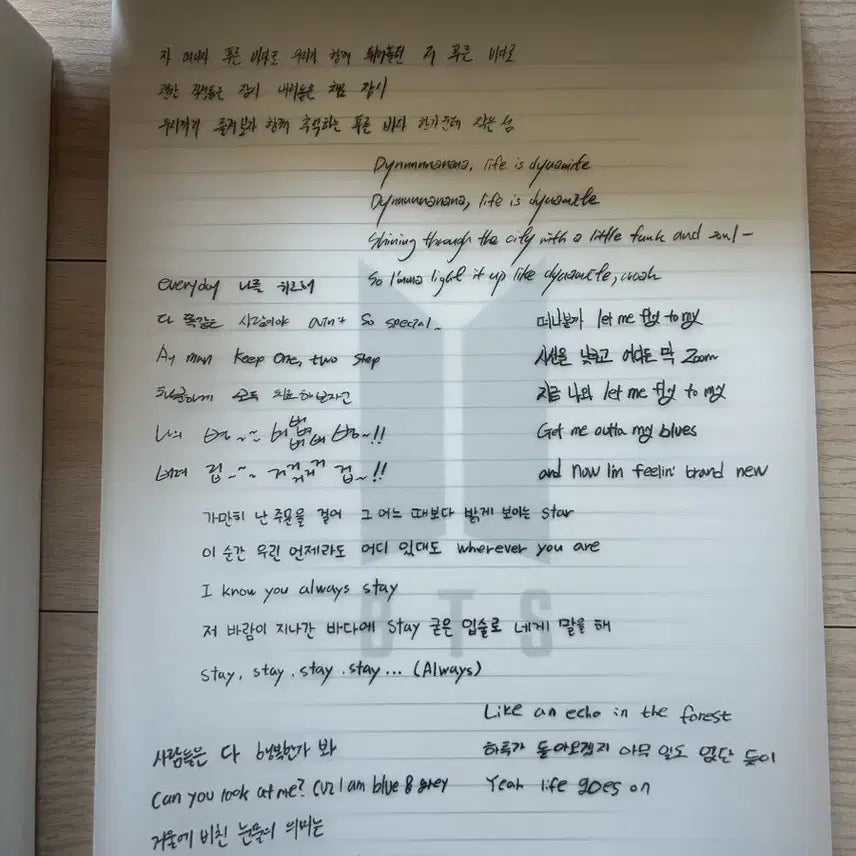 자 떠나자 푸른 바다로 우리가 함께 뛰어놀던 저 푸른 바다로
괜한 걱정들은 잠시 내려놓은 채 잠시
우리끼리 즐겨보자 함께 추억하는 푸른 바다 한가운데 작은 섬
Dynnnnnanana, life is dynamite
Dynnnnnanana, life is dynamite
Shining through the city with a little funk and soul -
So I'mma light it up like dynamite, woah
everyday 나를 위로해
다 똑같은 사람이야 ain't so special
Ay man keep one, two step
차분하게 모두 치료해보자고
나의 병~~ 병~!!
버려 겁~~ 겁~!!
떠나볼까 let me fly to my
시선을 낮추고 어디든 막 Zoom
지금 나와 let me fly to my
Get me outta my blues
and now I'm feelin' brand new
가만히 난 주문을 걸어 그 어느 때보다 밝게 보이는 star
이 순간 우린 언제라도 어디 있대도 wherever you are
I know you always stay
저 바람이 지나간 바다에 stay 굳은 입술로 네게 말을 해
stay, stay, stay, stay... (Always)
BTS
Like an echo in the forest
하루가 돌아오겠지 아무 일도 없단 듯이
Yeah life goes on
사람들은 다 행복한가 봐
Can you look at me? Cuz I am blue & grey
거울에 비친 눈물의 의미는